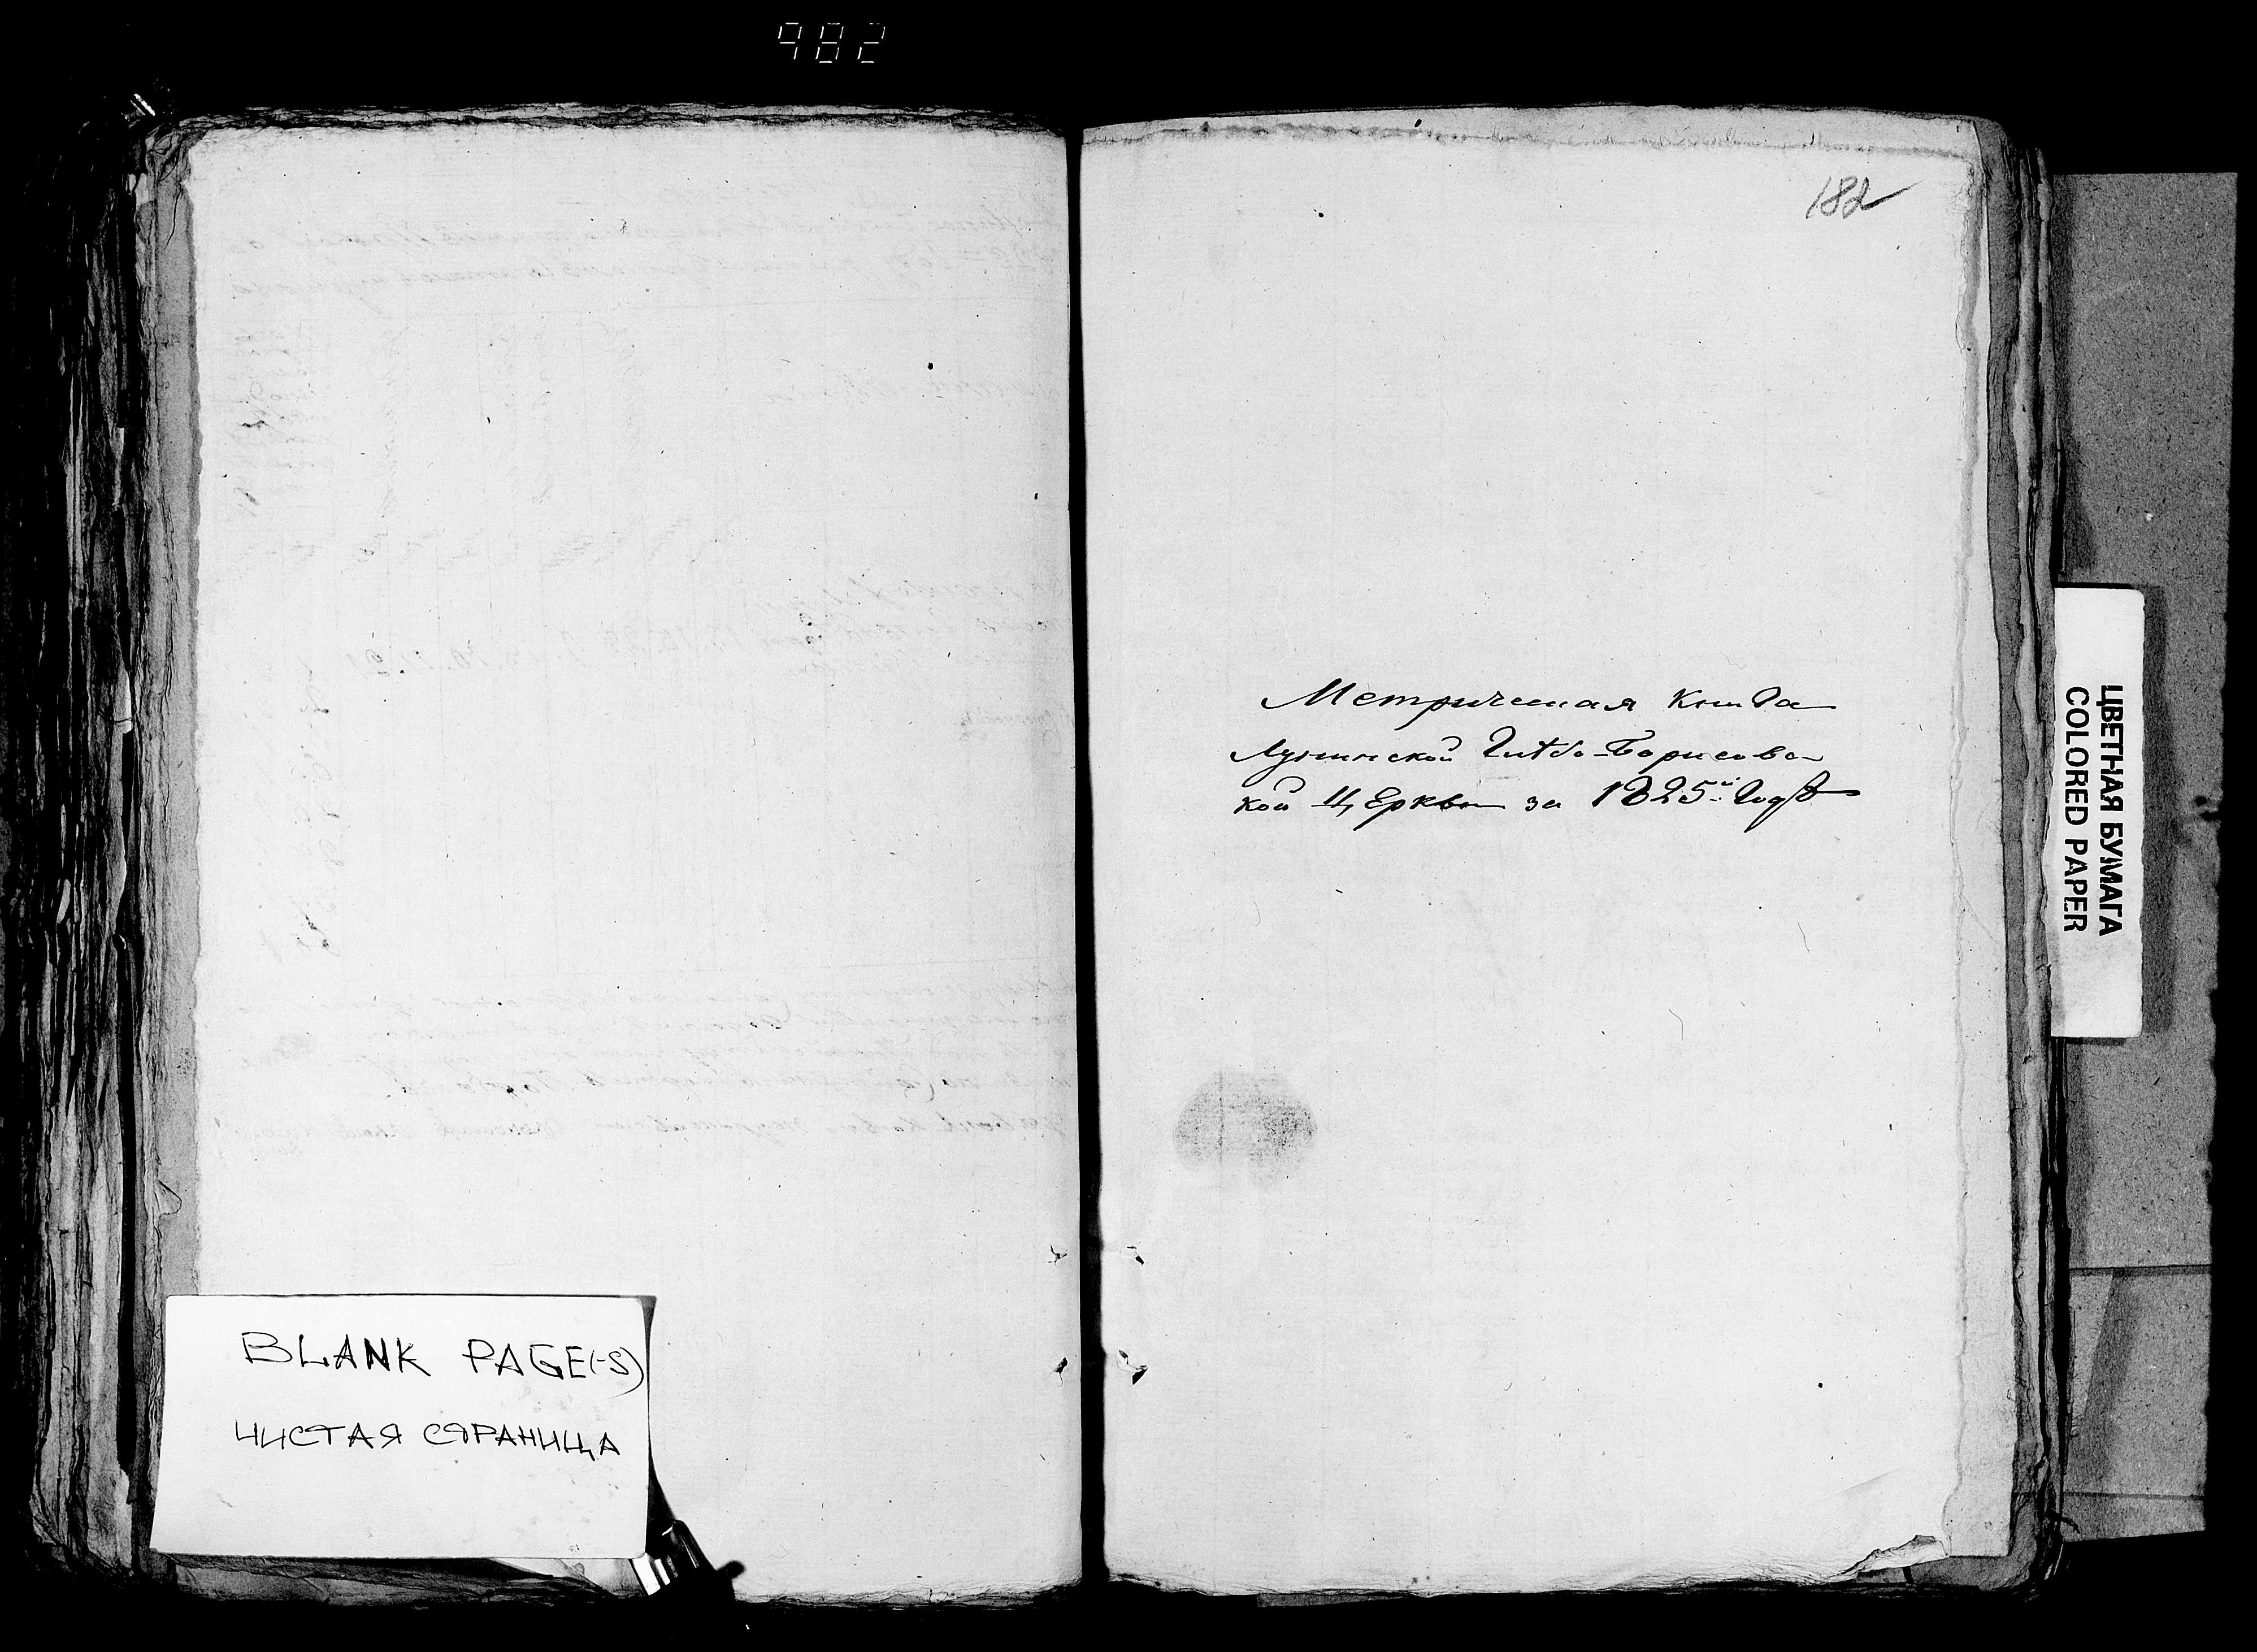 982
182
Метрическая книга
Лунинской Глѣбо-Борисовс-
кой Церкви за 1825й Годъ
ЦВЕТНАЯ БУМАГА
COLORED PAPER
BLANK PAGE(-S)
ЧИСТАЯ СТРАНИЦА